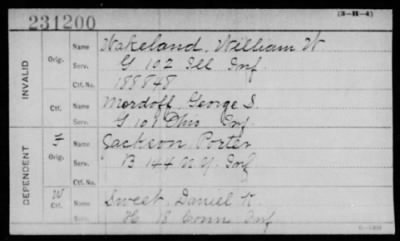 231200
(3-H-4)
INVALID
Orig.
Name
Wakeland, William W
Serv.
G 102 Ill Inf.
Ctf. No.
188848
Ctf.
Name
Merdoff, George S.
Serv.
G 101 Ohio Inf
DEPENDENT
F
Orig.
Name
Jackson, Porter
Serv.
B 144 N.Y. Inf
Ctf. No.
W
Ctf.
Name
Sweet, Daniel K.
Serv.
H 18 Conn Inf